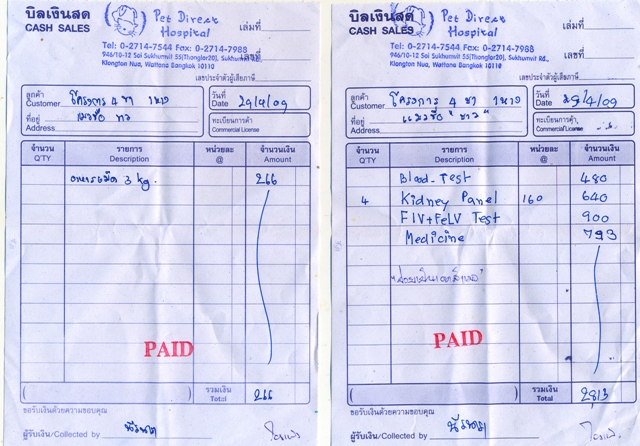 บิลเงินสด
CASH SALES
Pet Direct
Hospital
เล่มที่
เลขที่
Tel: 0-2714-7544 Fax: 0-2714-7988
946/10-12 Soi Sukhumvit 55(Thonglor20), Sukhumvit Rd.,
Klongton Nua, Wattana Bangkok 10110
เลขประจำตัวผู้เสียภาษี
ลูกค้า
Customer โครงการ 4 ขา 1 หาง
วันที่
Date 29/4/09
ที่อยู่
Address แมวชื่อ
ทะเบียนการค้า
Commercial License
จำนวน รายการ หน่วยละ จำนวนเงิน
Q'TY Description @ Amount
อาหารเม็ด 3 kg. 266
PAID
รวมเงิน
Total 266
ขอรับเงินด้วยความขอบคุณ
ผู้รับเงิน/Collected by
บิลเงินสด
CASH SALES
Pet Direct
Hospital
เล่มที่
เลขที่
Tel: 0-2714-7544 Fax: 0-2714-7988
946/10-12 Soi Sukhumvit 55(Thonglor20), Sukhumvit Rd.,
Klongton Nua, Wattana Bangkok 10110
เลขประจำตัวผู้เสียภาษี
ลูกค้า
Customer โครงการ 4 ขา 1 หาง
วันที่
Date 29/4/09
ที่อยู่
Address แมวชื่อ "ขาว"
ทะเบียนการค้า
Commercial License
จำนวน รายการ หน่วยละ จำนวนเงิน
Q'TY Description @ Amount
Blood-Test 480
4 Kidney Panel 160 640
FIV+FeLV Test 900
Medicine 793
PAID
รวมเงิน
Total 2813
ขอรับเงินด้วยความขอบคุณ
ผู้รับเงิน/Collected by